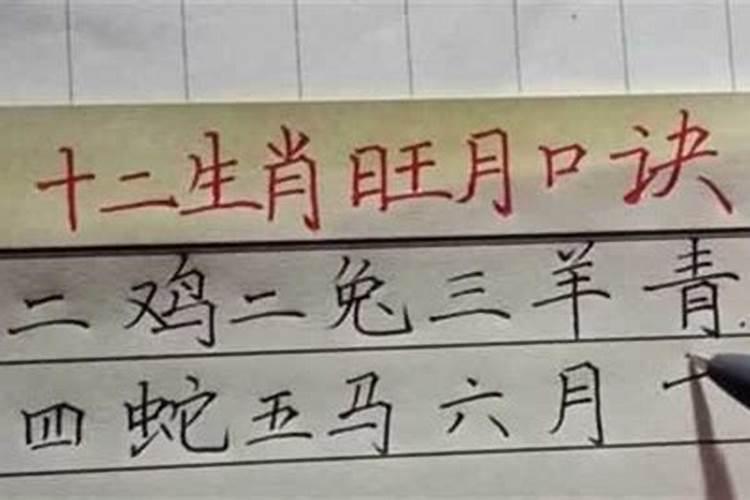 十二生肖旺月口诀
二鸡二兔三羊青
四蛇五马六月